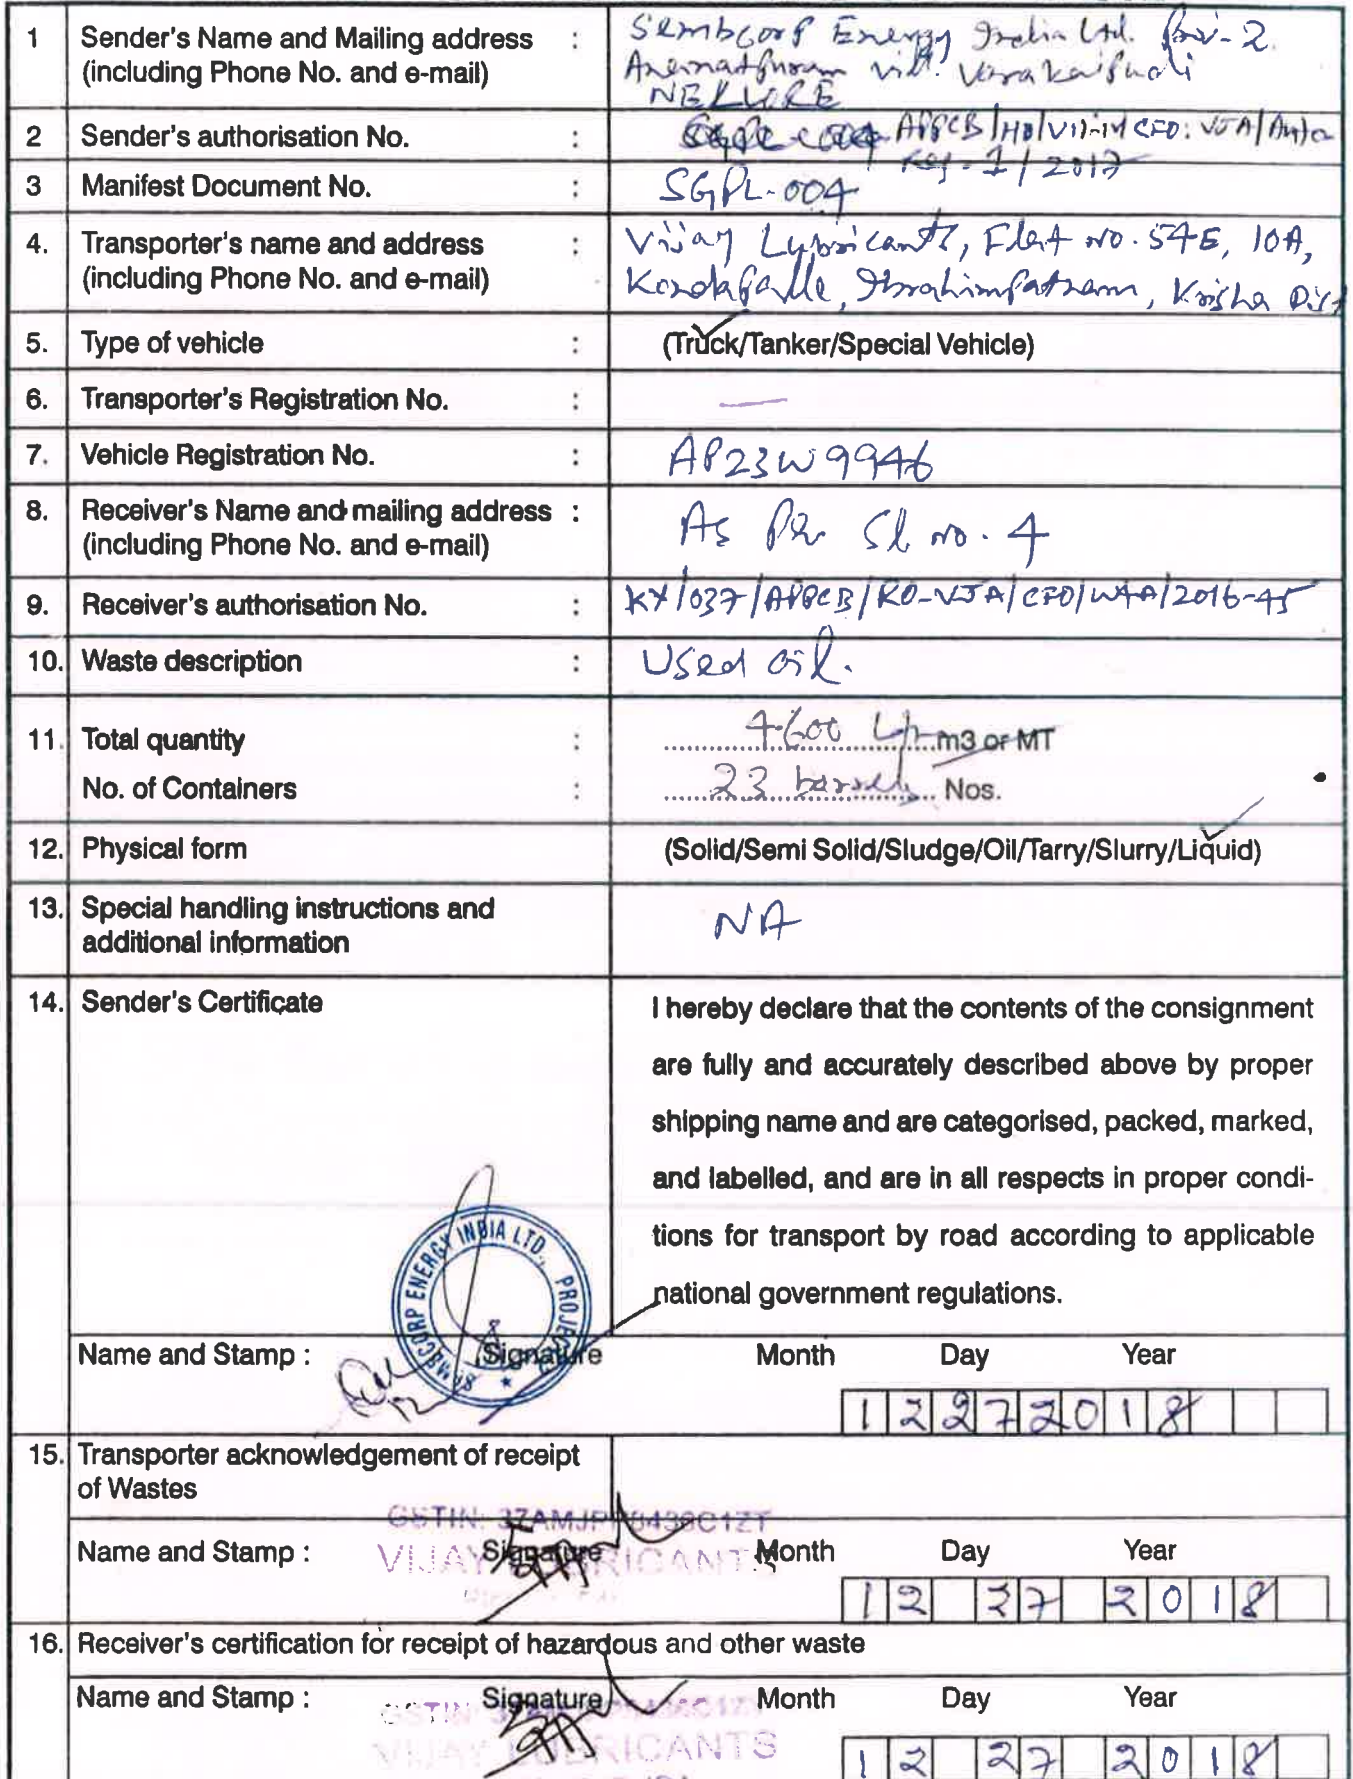 1 Sender's Name and Mailing address : Sembcorp Energy India Ltd. -2
(including Phone No. and e-mail) vill. Varakavipudi
NELLORE
2 Sender's authorisation No. : APPCB/HO/ CFO: VJA/
Reg-1/2017
3 Manifest Document No. : SGPL-004
4. Transporter's name and address : Vijay Lubricants, Flat no. 54E, 10A,
(including Phone No. and e-mail) Kondapalle, Ibrahimpatnam, Krisha Dist
5. Type of vehicle : (Truck/Tanker/Special Vehicle)
6. Transporter's Registration No. : —
7. Vehicle Registration No. : AP23W9946
8. Receiver's Name and mailing address : As Per Sl no. 4
(including Phone No. and e-mail)
9. Receiver's authorisation No. : /037/APPCB/RO-VJA/CFO/W&A/2016-45
10. Waste description : Used oil.
11. Total quantity : 4600 Ltr m3 or MT
No. of Containers : 23 barrels Nos.
12. Physical form (Solid/Semi Solid/Sludge/Oil/Tarry/Slurry/Liquid)
13. Special handling instructions and NA
additional information
14. Sender's Certificate I hereby declare that the contents of the consignment
are fully and accurately described above by proper
shipping name and are categorised, packed, marked,
and labelled, and are in all respects in proper condi-
tions for transport by road according to applicable
national government regulations.
SEMBCORP ENERGY INDIA LTD. PROJECT
Name and Stamp : (Signature Month Day Year
12272018
15. Transporter acknowledgement of receipt
of Wastes
GSTIN: 37AMJP 8436C1ZT
VIJAY LUBRICANTS
Name and Stamp : Signature Month Day Year
12 27 2018
16. Receiver's certification for receipt of hazardous and other waste
Name and Stamp : Signature Month Day Year
GSTIN:
VIJAY LUBRICANTS
12 27 2018